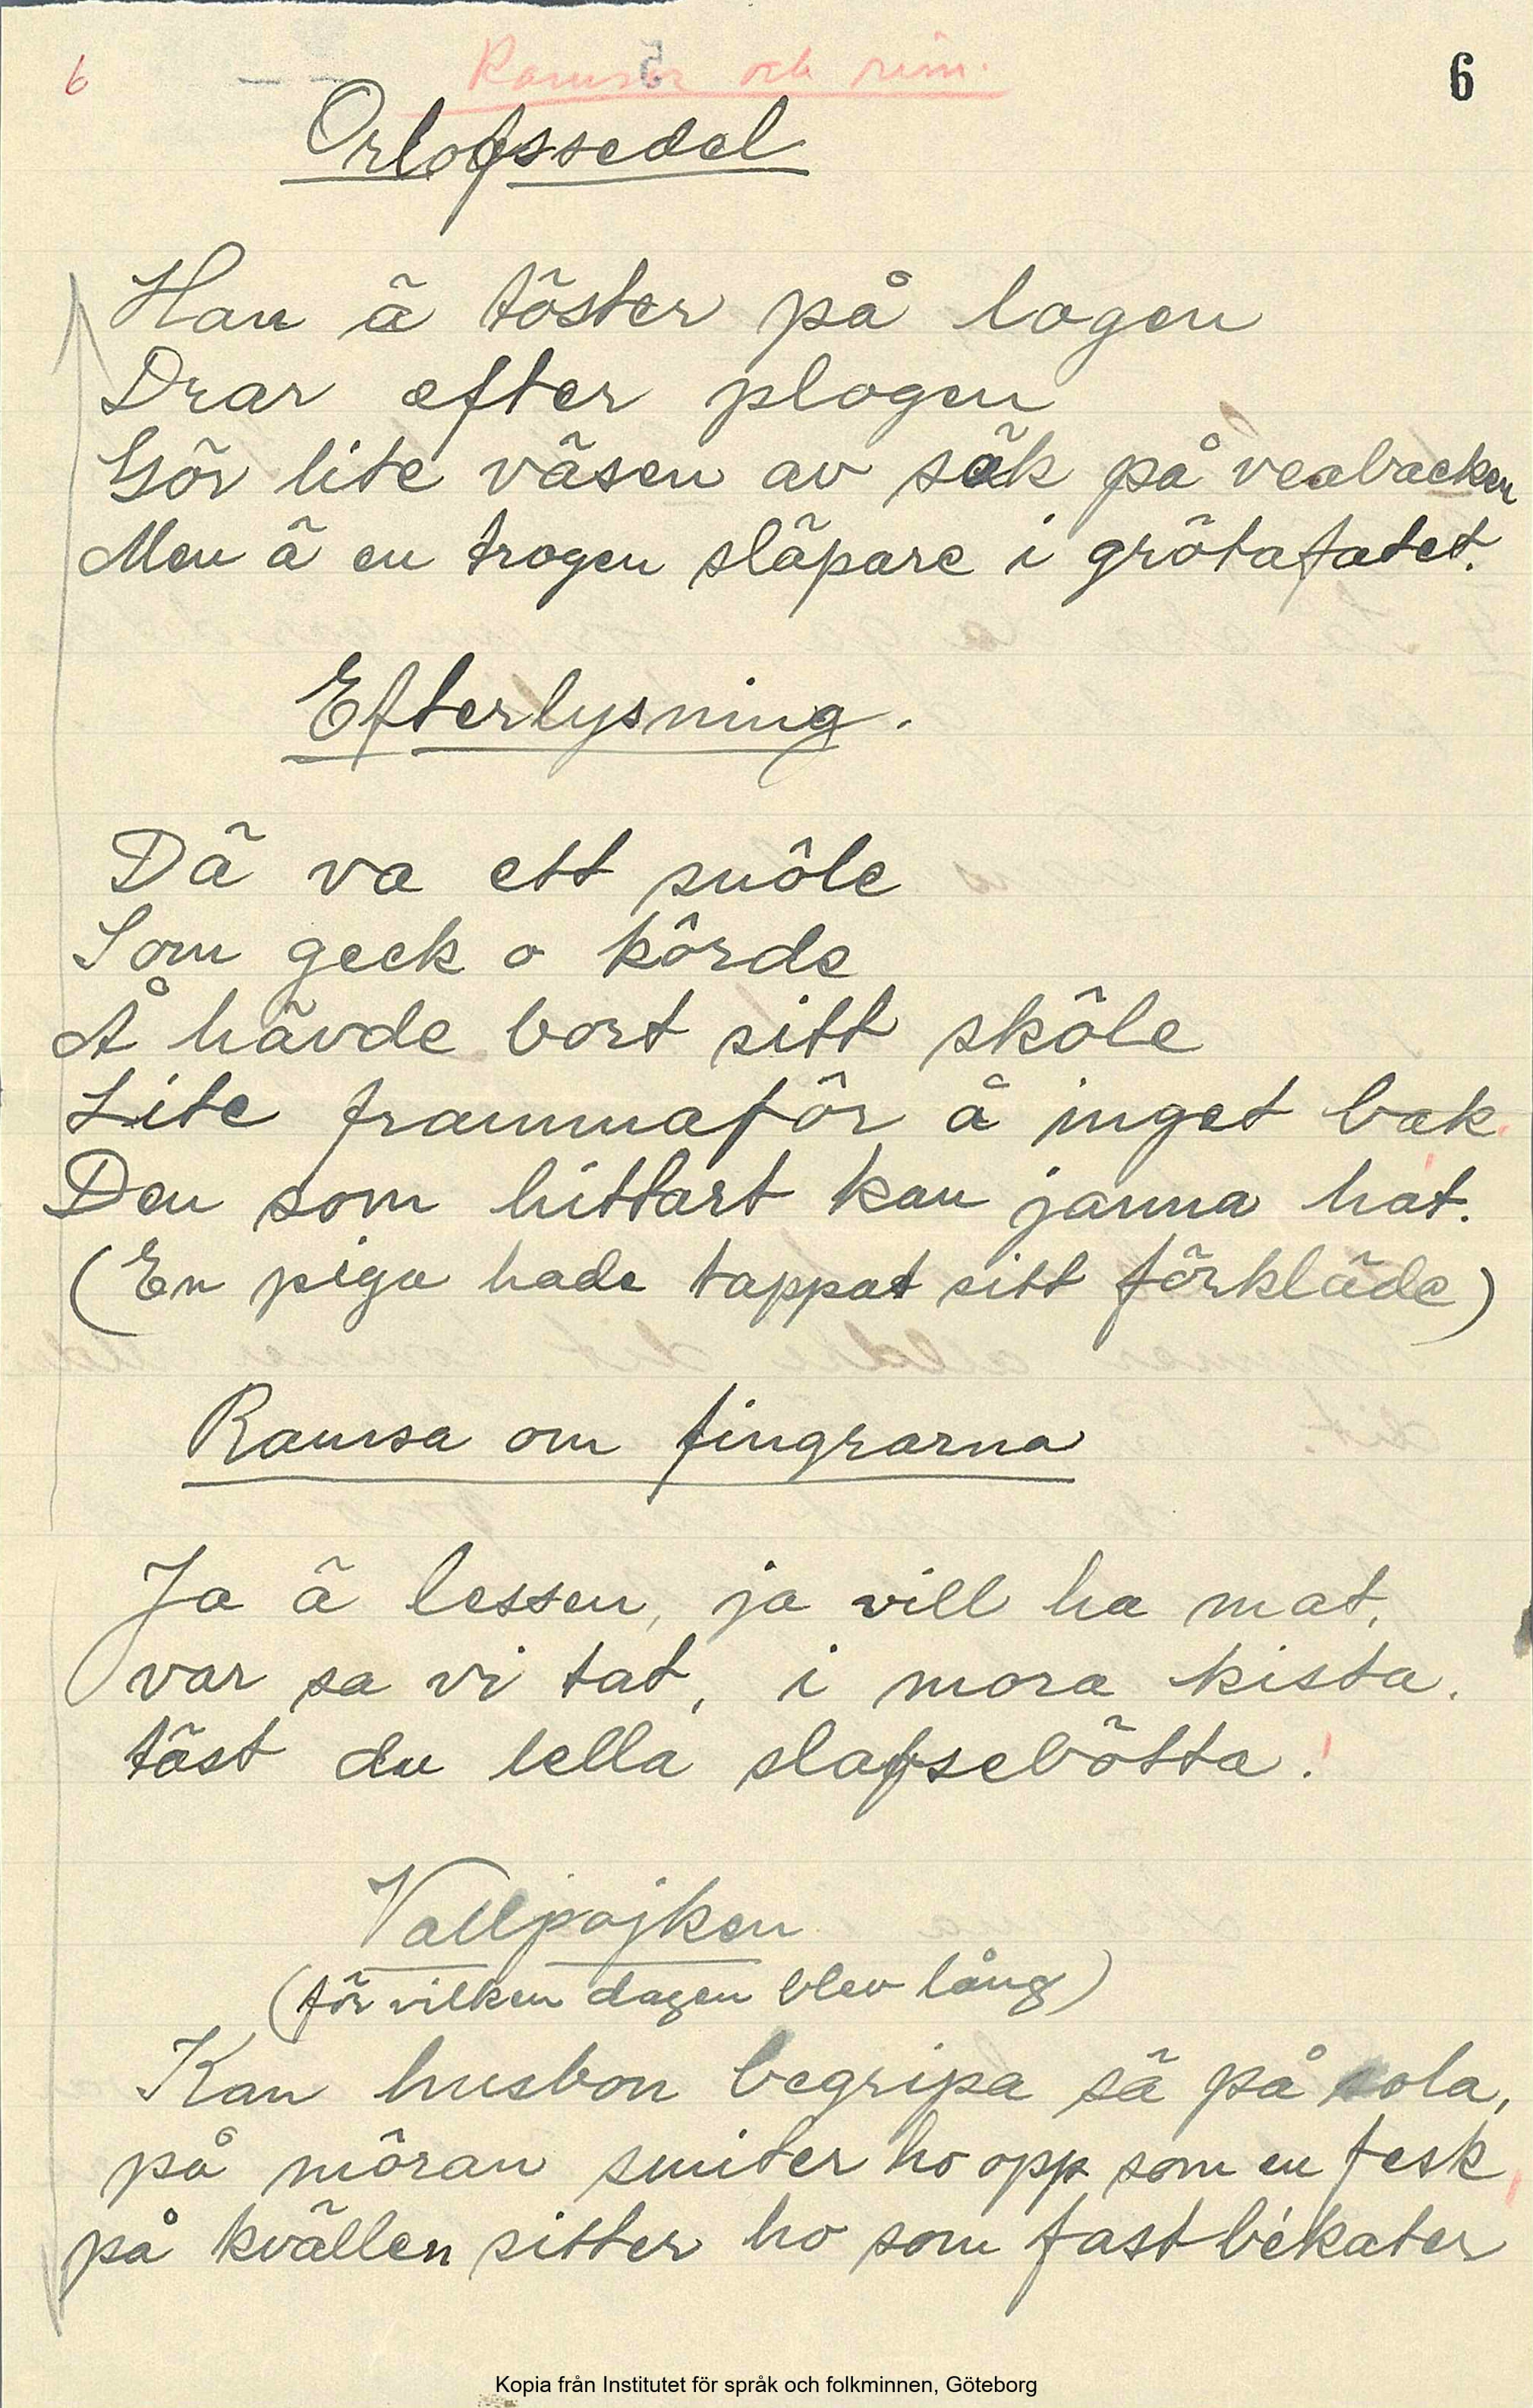 6
Ramsor och rim.
5
6
Orlofssedel
Han ä töster på logen
Drar efter plogen
Gör lite väsen av säk på veabacken
Men ä en trogen släpare i grötafatet.
Efterlysning.
Dä va ett snöle
Som geck o körde
Å hävde bort sitt sköle
Lite frammaför å inget bak.
Den som hittart kan janna hat.
(En piga hade tappat sitt förkläde)
Ramsa om fingrarna
Ja ä lessen, ja vill ha mat,
var sa vi tat, i mora kista.
täst du lella slafsebötta!
Vallpojken
(för vilken dagen blev lång)
Kan husbon begripa sä på sola,
på möran smiter ho opp som en fesk,
på kvällen sitter ho som fastbékater
Kopia från Institutet för språk och folkminnen, Göteborg